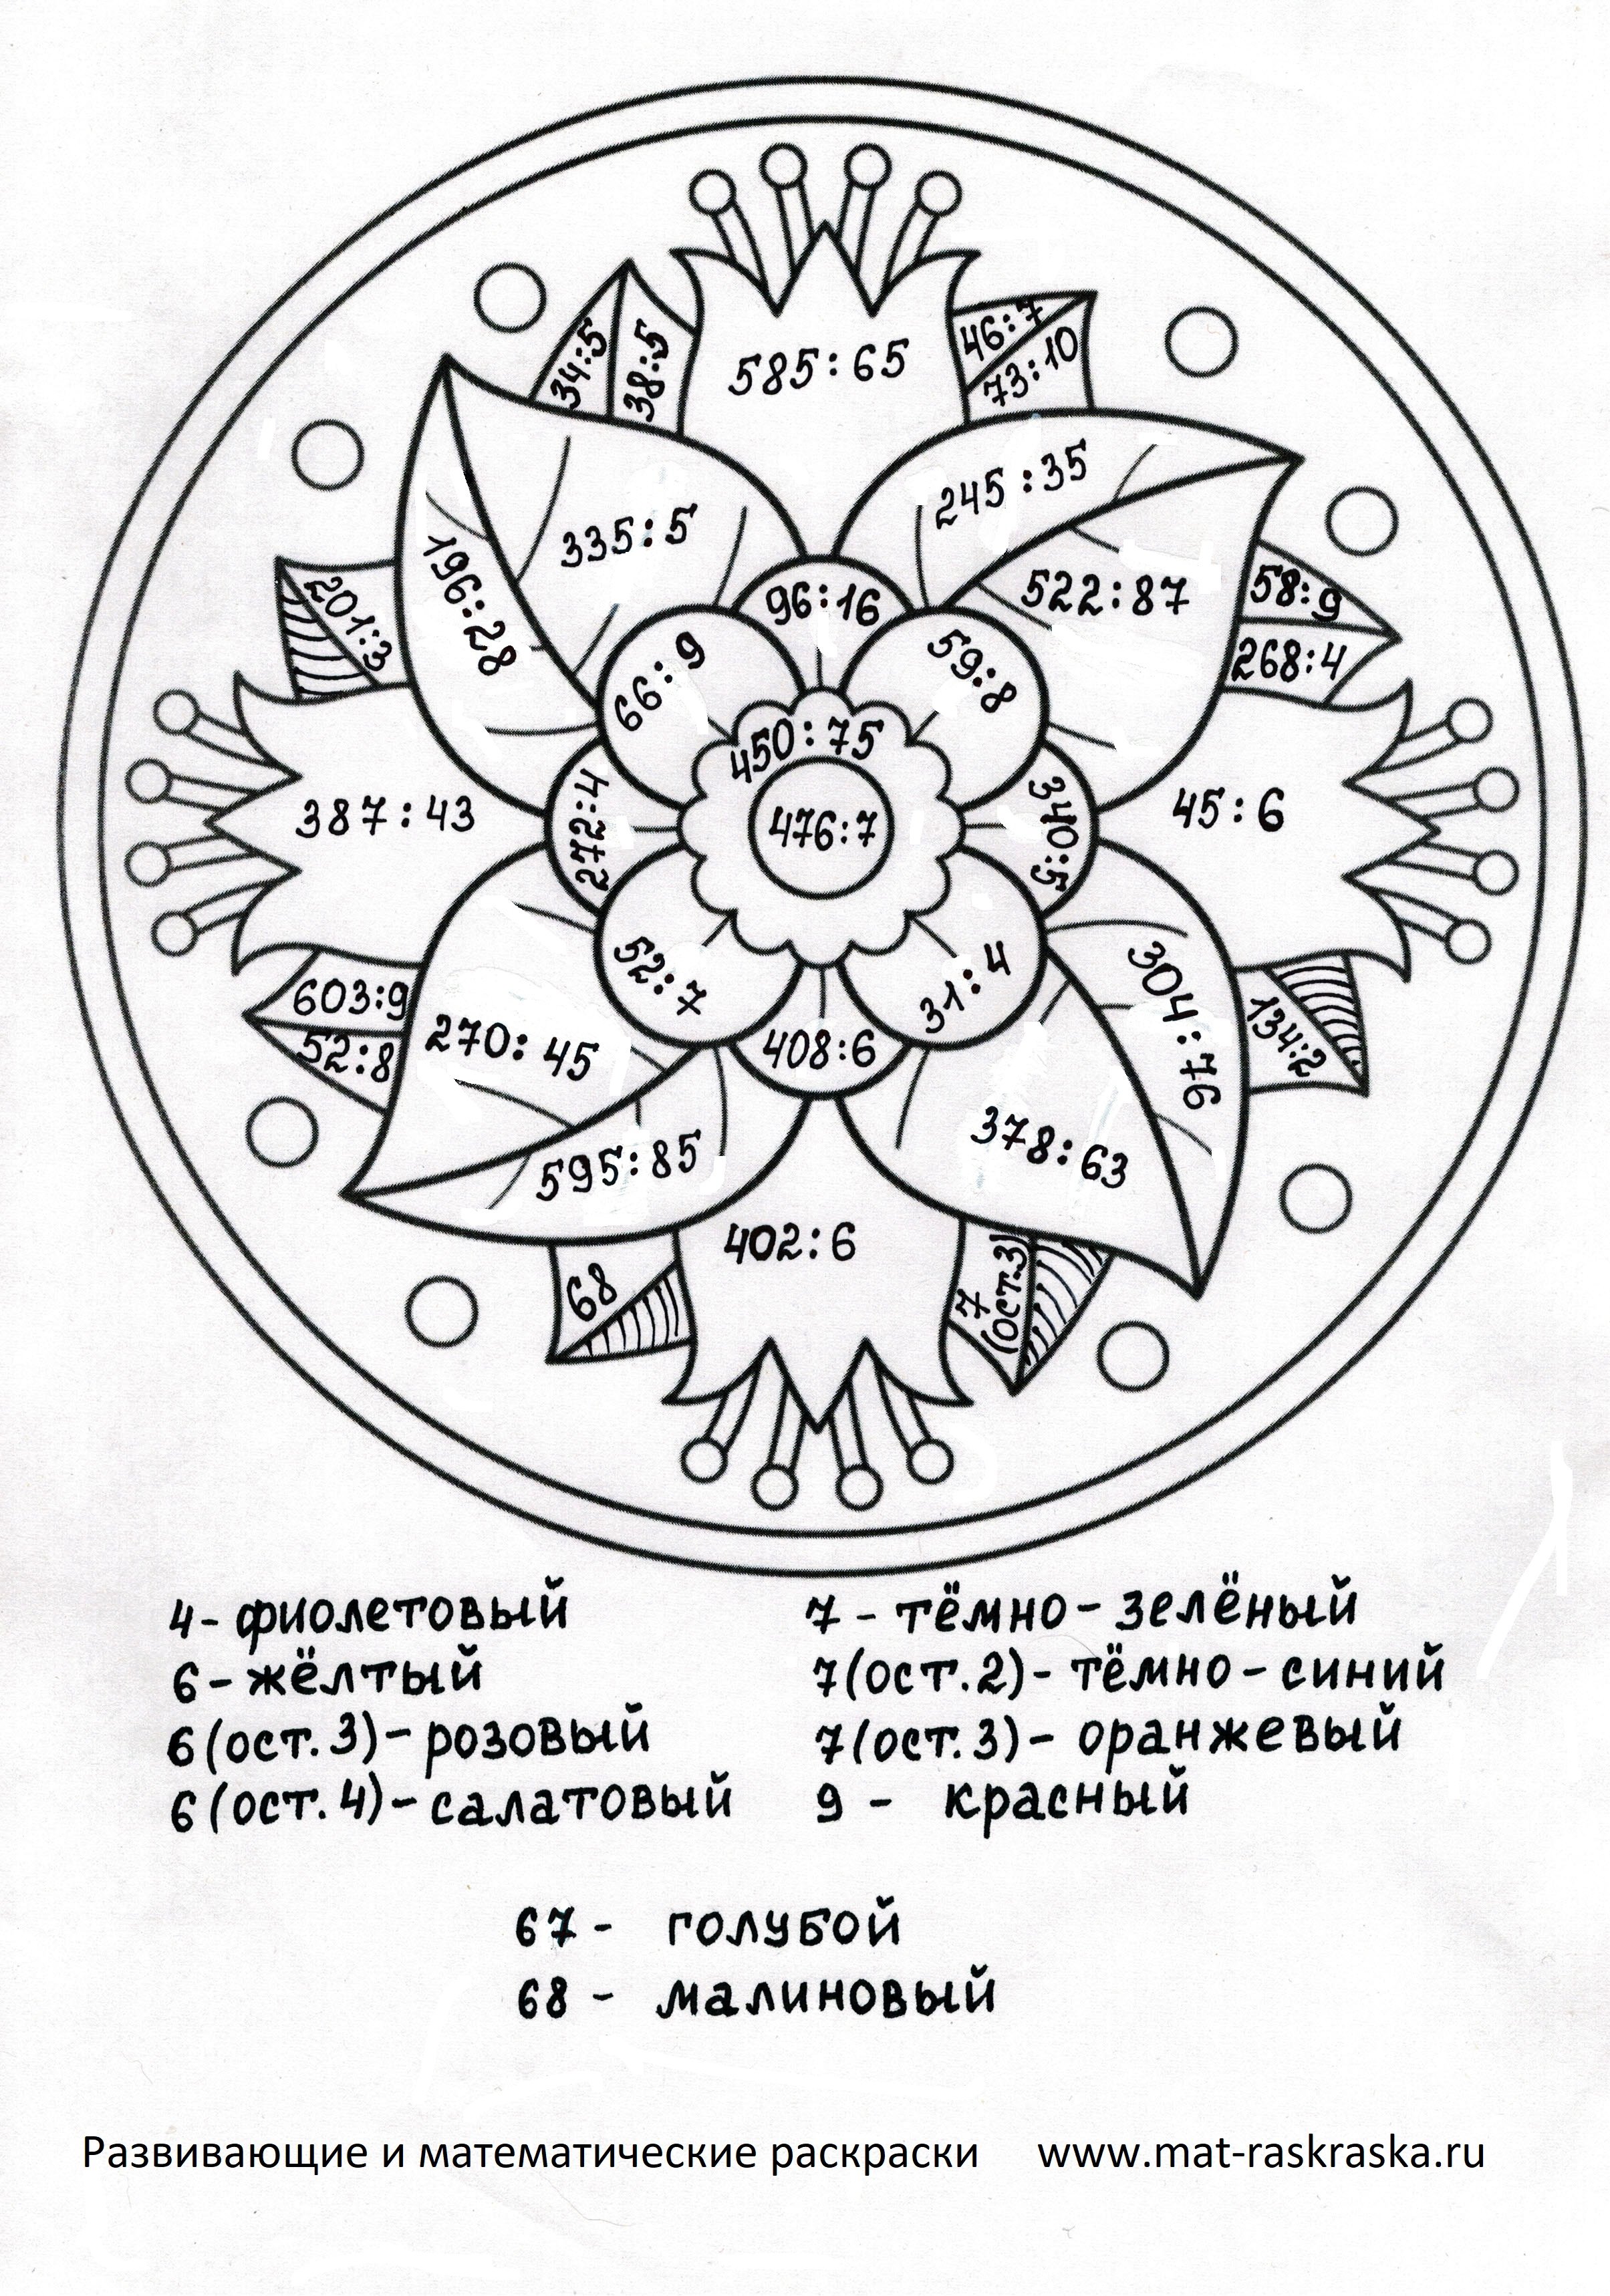 34:5
38:5
585:65
46:7
73:10
335:5
245:35
196:28
201:3
96:16
522:87
58:9
268:4
66:9
59:8
450:75
387:43
272:4
476:7
340:5
45:6
52:7
31:4
603:9
52:8
270:45
408:6
304:76
134:2
595:85
378:63
402:6
68
7
(ост.3)
4 - фиолетовый
6 - жёлтый
6 (ост. 3) - розовый
6 (ост. 4) - салатовый
7 - тёмно - зелёный
7 (ост. 2) - тёмно - синий
7 (ост. 3) - оранжевый
9 - красный
67 - голубой
68 - малиновый
Развивающие и математические раскраски www.mat-raskraska.ru